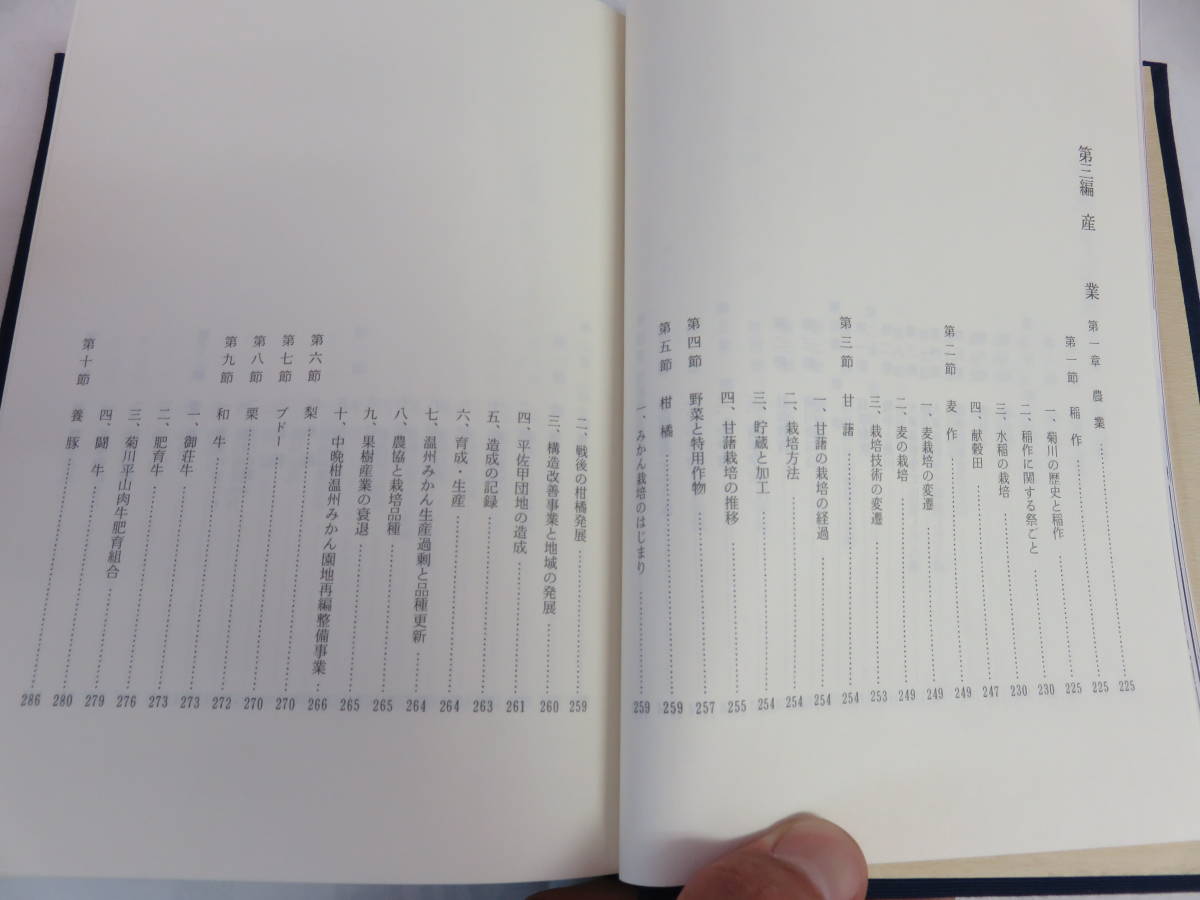 第三編 産 業
第一章 農業………225
第一節 稲作………225
一、菊川の歴史と稲作………225
二、稲作に関する祭ごと………230
三、水稲の栽培………230
四、献穀田………247
第二節 麦作………249
一、麦栽培の変遷………249
二、麦の栽培………249
三、栽培技術の変遷………253
第三節 甘藷………254
一、甘藷の栽培の経過………254
二、栽培方法………254
三、貯蔵と加工………254
四、甘藷栽培の推移………255
第四節 野菜と特用作物………257
第五節 柑橘………259
一、みかん栽培のはじまり………259
二、戦後の柑橘発展………259
三、構造改善事業と地域の発展………260
四、平佐甲団地の造成………261
五、造成の記録………263
六、育成・生産………264
七、温州みかん生産過剰と品種更新………264
八、農協と栽培品種………265
九、果樹産業の衰退………265
十、中晩柑温州みかん園地再編整備事業………266
第六節 梨………270
第七節 ブドー………270
第八節 栗………272
第九節 和牛………273
一、御荘牛………273
二、肥育牛………276
三、菊川平山肉牛肥育組合………279
四、闘牛………280
第十節 養豚………286